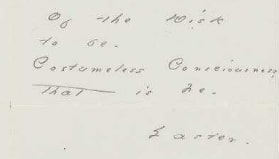 Of the Wick
to be.
Costumeless Consciousness
That is he.
Easter.